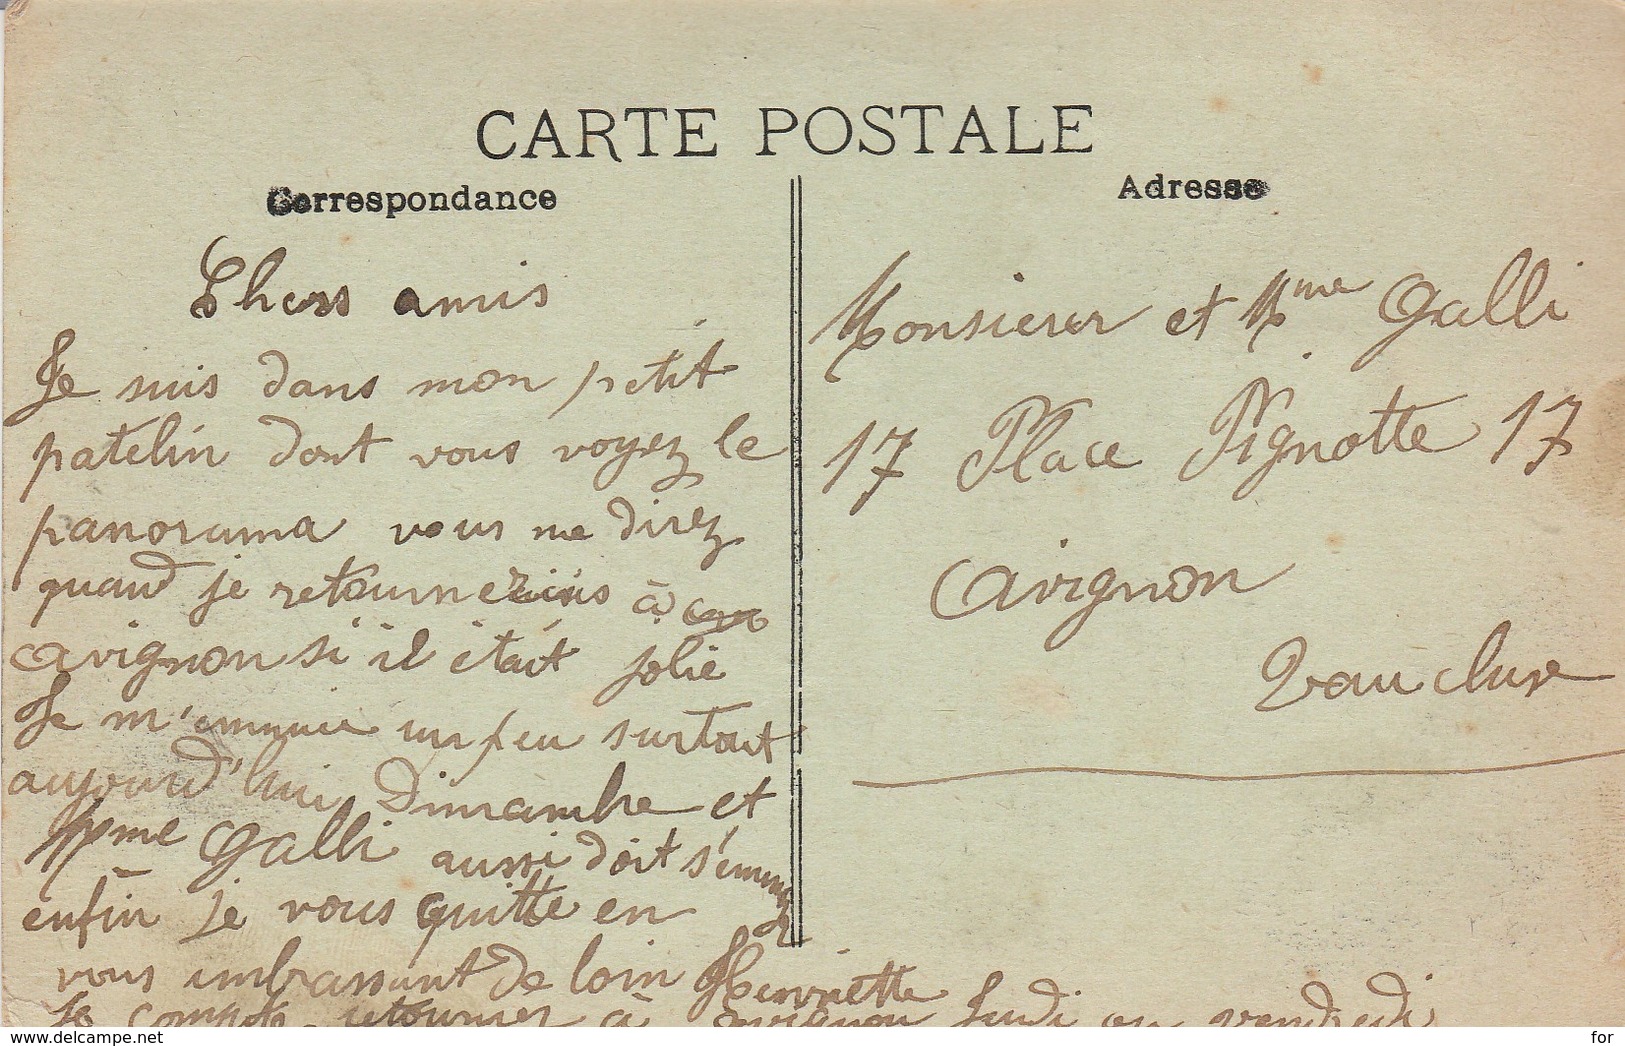 CARTE POSTALE
Correspondance
Chers amis
Je suis dans mon petit
patelin dont vous voyez le
panorama vous me direz
quand je retournerais à
avignon si il était jolie
Je m'ennuie un peu surtout
aujourd'hui Dimambre et
Mme Galli aussi doit s'ennuyer
enfin je vous quitte en
vous embrassant de loin Henriette
Je compte retourner à avignon Jeudi ou vendredi
Adresse
Monsieur et Mme Galli
17 Place Pignotte 17
Avignon
Vaucluse
www.delcampe.net
for